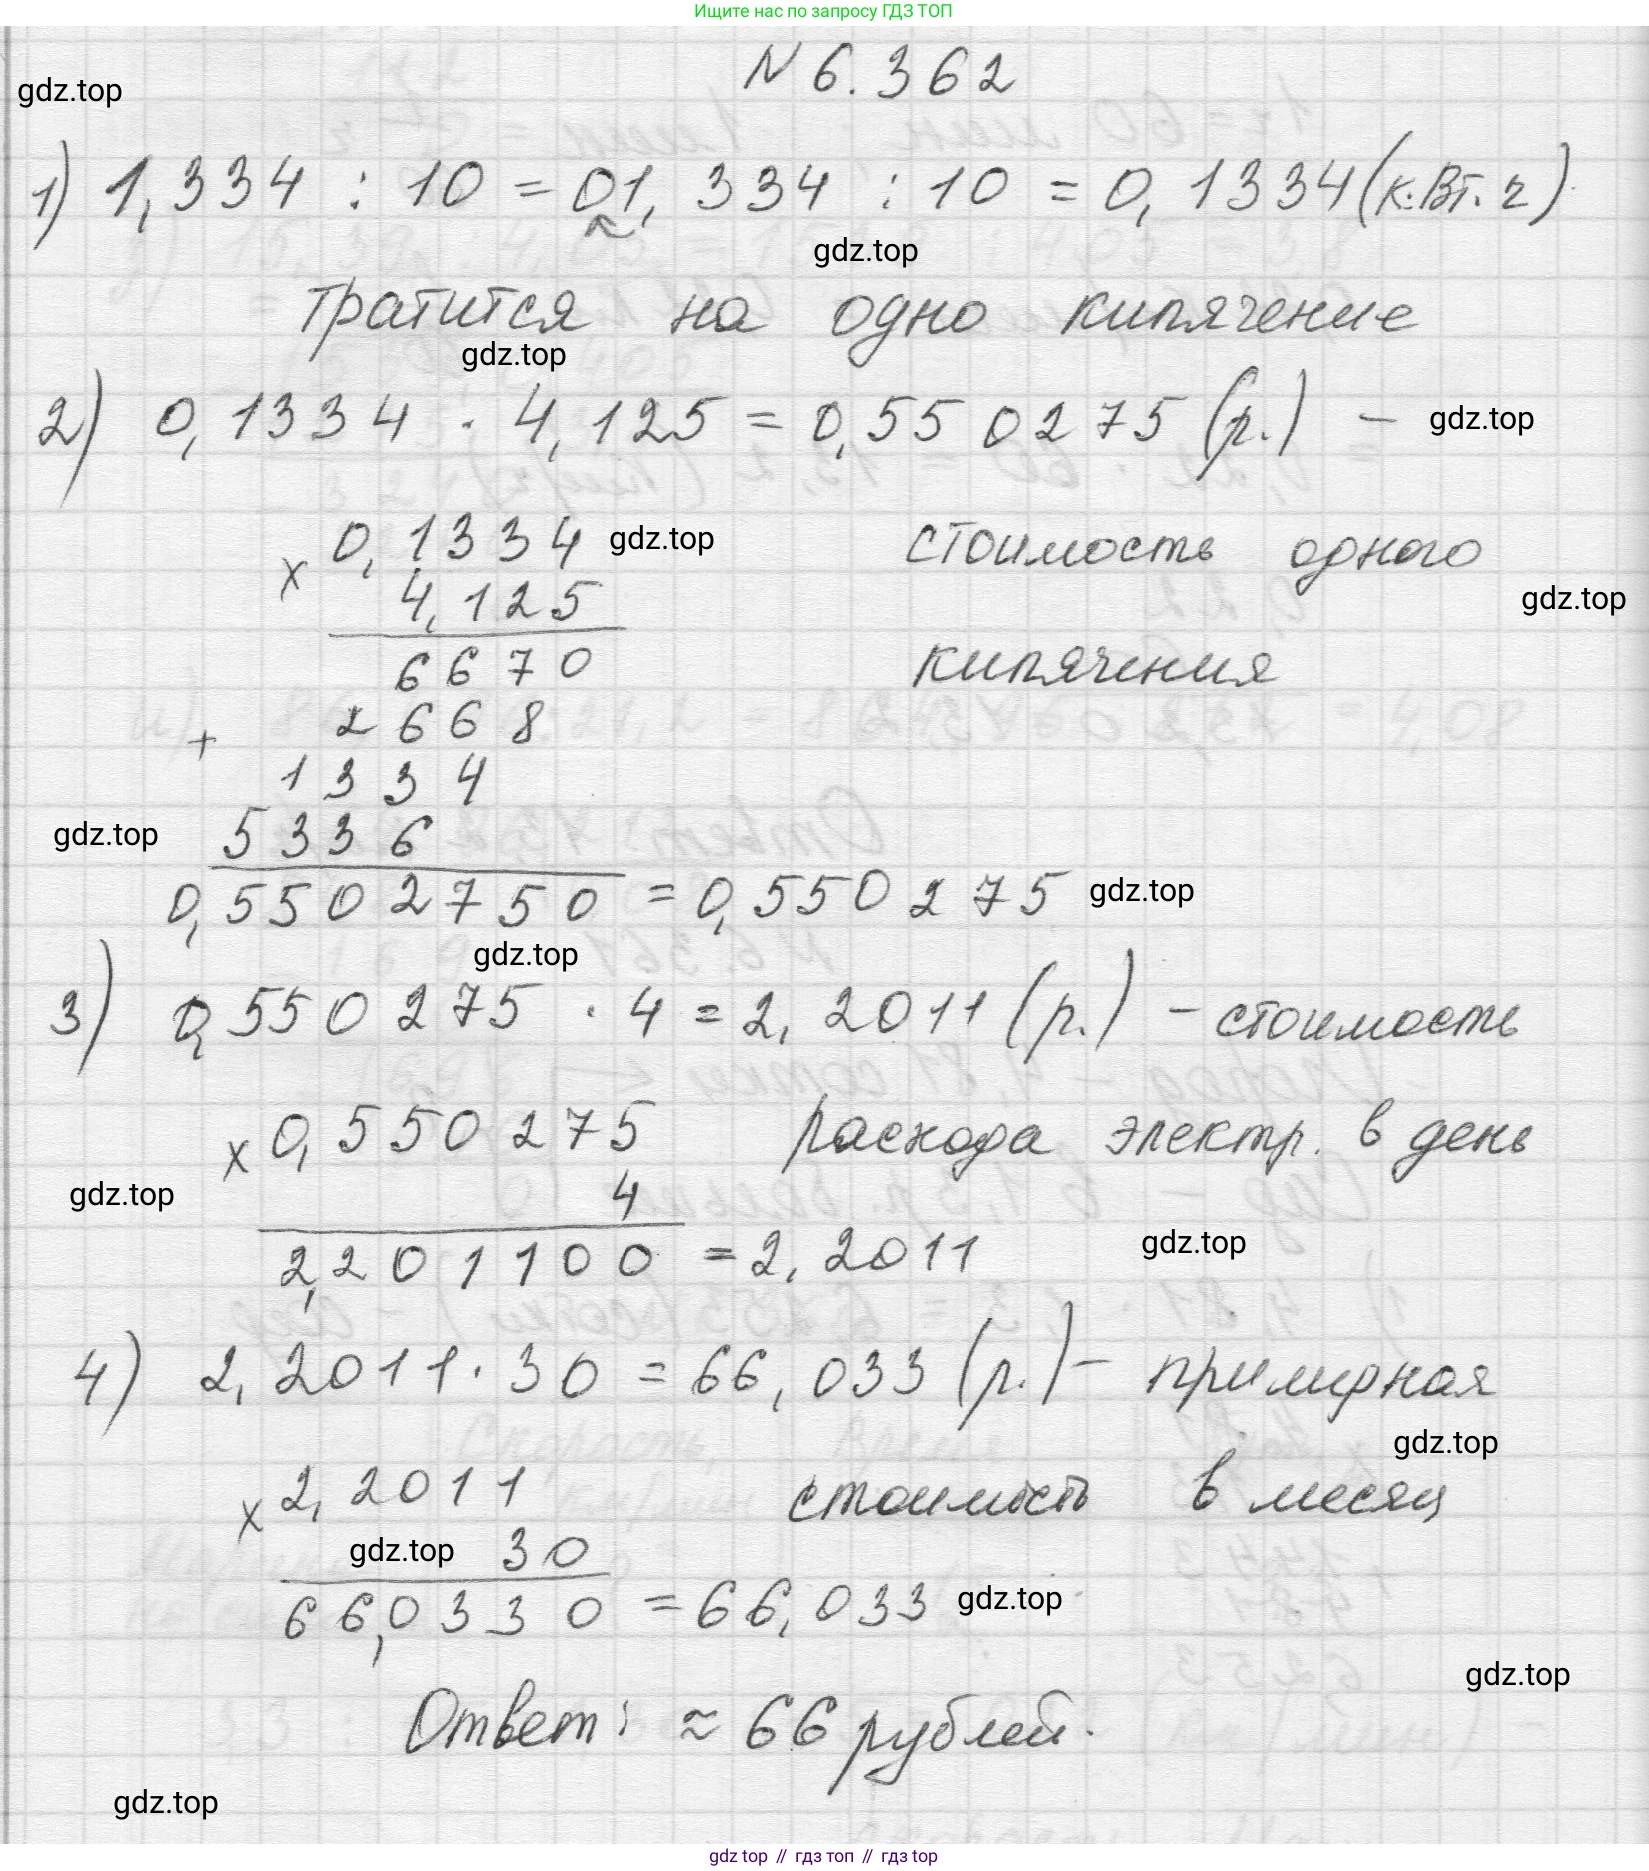 Ищите нас по запросу ГДЗ ТОП
N 6.362
gdz.top
1) 1,334 : 10 = 01,334 : 10 = 0,1334 (кВт.ч)
gdz.top
тратится на одно кипячение
gdz.top
2) 0,1334 · 4,125 = 0,550275 (р.) – gdz.top
x 0,1334 gdz.top стоимость одного
4,125 gdz.top
6670 кипячения
+ 2668
1334
gdz.top 5336
0,5502750 = 0,550275 gdz.top
gdz.top
3) 0,550275 · 4 = 2,2011 (р.) – стоимость
x 0,550275 расхода электр. в день
gdz.top 4
2,201100 = 2,2011 gdz.top
4) 2,2011 · 30 = 66,033 (р.) – примирная
gdz.top
x 2,2011 стоимость в месяц
gdz.top 30
66,0330 = 66,033 gdz.top
gdz.top
Ответ: ≈ 66 рублей.
gdz.top
gdz top // гдз топ // гдз top